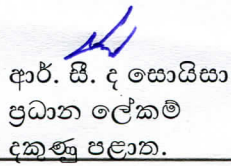 ආර්. සී. ද සොයිසා
ප්‍රධාන ලේකම්
දකුණු පළාත.